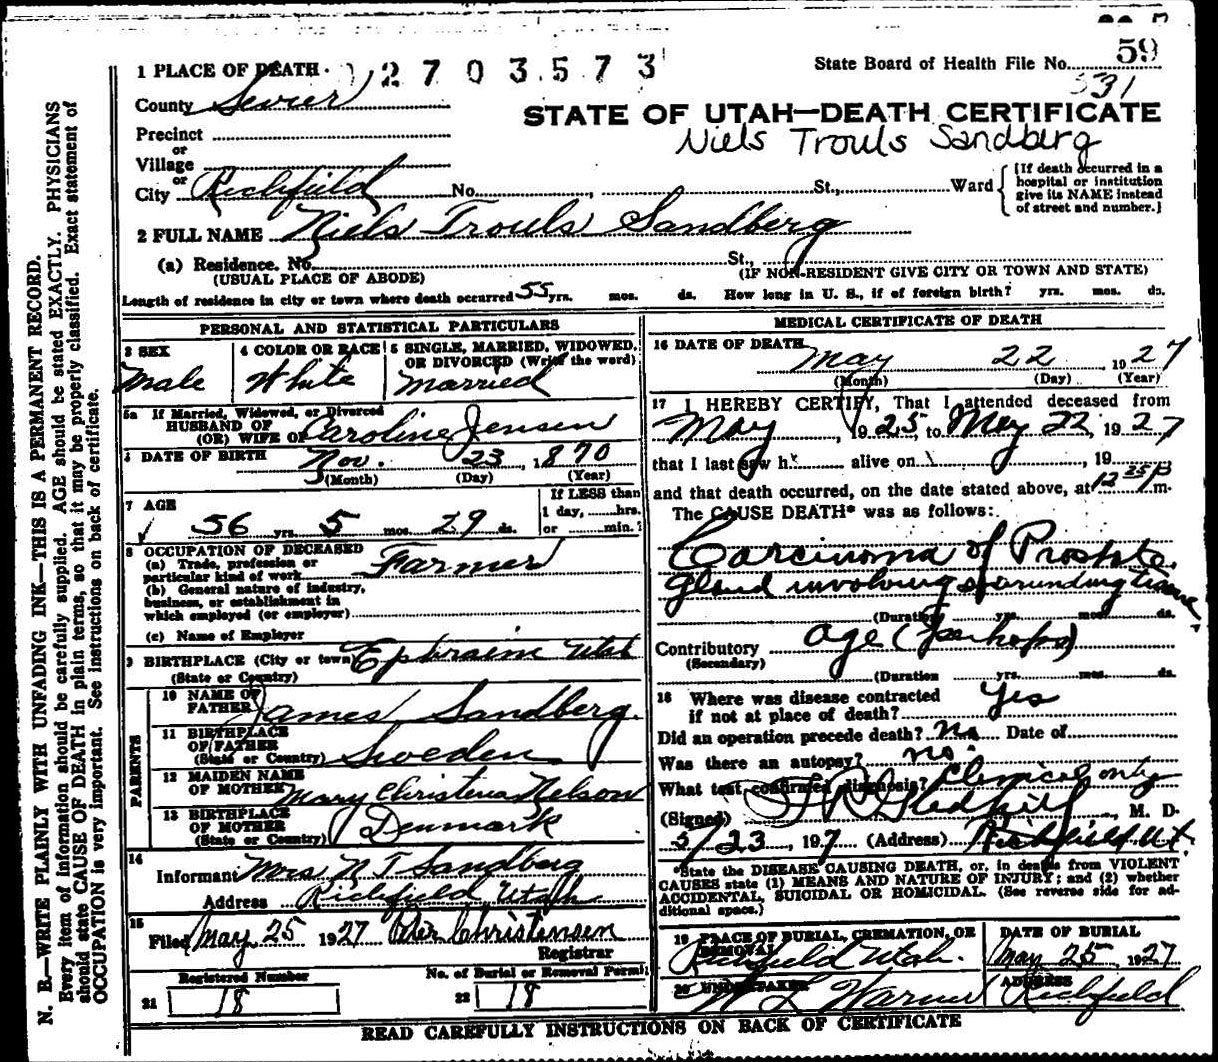 1 PLACE OF DEATH 2703573
State Board of Health File No. 59
531
County Sevier
STATE OF UTAH—DEATH CERTIFICATE
Niels Trouls Sandberg
Precinct
or
Village
or
City Richfield No. , St., Ward
[If death occurred in a
hospital or institution
give its NAME instead
of street and number.]
2 FULL NAME Niels Trouls Sandberg
(a) Residence. No. St.,
(USUAL PLACE OF ABODE) (IF NON-RESIDENT GIVE CITY OR TOWN AND STATE)
Length of residence in city or town where death occurred 55 yrs. mos. ds. How long in U. S., if of foreign birth? yrs. mos. ds.
PERSONAL AND STATISTICAL PARTICULARS
3 SEX
Male
4 COLOR OR RACE
White
5 SINGLE, MARRIED, WIDOWED,
OR DIVORCED (Write the word)
Married
5a If Married, Widowed, or Divorced
HUSBAND OF
(OR) WIFE OF Caroline Jensen
6 DATE OF BIRTH Nov. 23, 1870
(Month) (Day) (Year)
7 AGE
56 yrs. 5 mos. 29 ds.
If LESS than
1 day, hrs.
or min.?
8 OCCUPATION OF DECEASED
(a) Trade, profession or
particular kind of work Farmer
(b) General nature of industry,
business, or establishment in
which employed (or employer)
(c) Name of Employer
9 BIRTHPLACE (City or town) Ephraim Utah
(State or Country)
PARENTS
10 NAME OF
FATHER James Sandberg
11 BIRTHPLACE
OF FATHER
(State or Country) Sweden
12 MAIDEN NAME
OF MOTHER Mary Christena Nelson
13 BIRTHPLACE
OF MOTHER
(State or Country) Denmark
14
Informant Mrs N T Sandberg
Address Richfield, Utah
15
Filed May 25 1927 Christensen
Registrar
Registered Number
21 18
No. of Burial or Removal Permit
22 18
MEDICAL CERTIFICATE OF DEATH
16 DATE OF DEATH
May 22 1927
(Month) (Day) (Year)
17 I HEREBY CERTIFY, That I attended deceased from
May , 1925, to May 22, 1927
that I last saw h alive on , 19
and that death occurred, on the date stated above, at 12 35 P m.
The CAUSE DEATH* was as follows:
Carcinoma of Prostate
gland involving surrounding tissue
(Duration) yrs. mos. ds.
Contributory age (perhaps)
(Secondary)
(Duration yrs. mos. ds.
18 Where was disease contracted
if not at place of death? Yes
Did an operation precede death? No Date of
Was there an autopsy? no
What test confirmed diagnosis? Clinical only
(Signed) , M. D.
5/23, 1927 (Address) Richfield Ut.
*State the DISEASE CAUSING DEATH, or, in deaths from VIOLENT
CAUSES state (1) MEANS AND NATURE OF INJURY; and (2) whether
ACCIDENTAL, SUICIDAL OR HOMICIDAL. (See reverse side for ad-
ditional space.)
19 PLACE OF BURIAL, CREMATION, OR
REMOVAL
Richfield Utah.
DATE OF BURIAL
May 25 1927
20 UNDERTAKER
W L Warner
ADDRESS
Richfield
READ CAREFULLY INSTRUCTIONS ON BACK OF CERTIFICATE
N. B.—WRITE PLAINLY WITH UNFADING INK—THIS IS A PERMANENT RECORD.
Every item of information should be carefully supplied. AGE should be stated EXACTLY. PHYSICIANS
should state CAUSE OF DEATH in plain terms, so that it may be properly classified. Exact statement of
OCCUPATION is very important. See instructions on back of certificate.